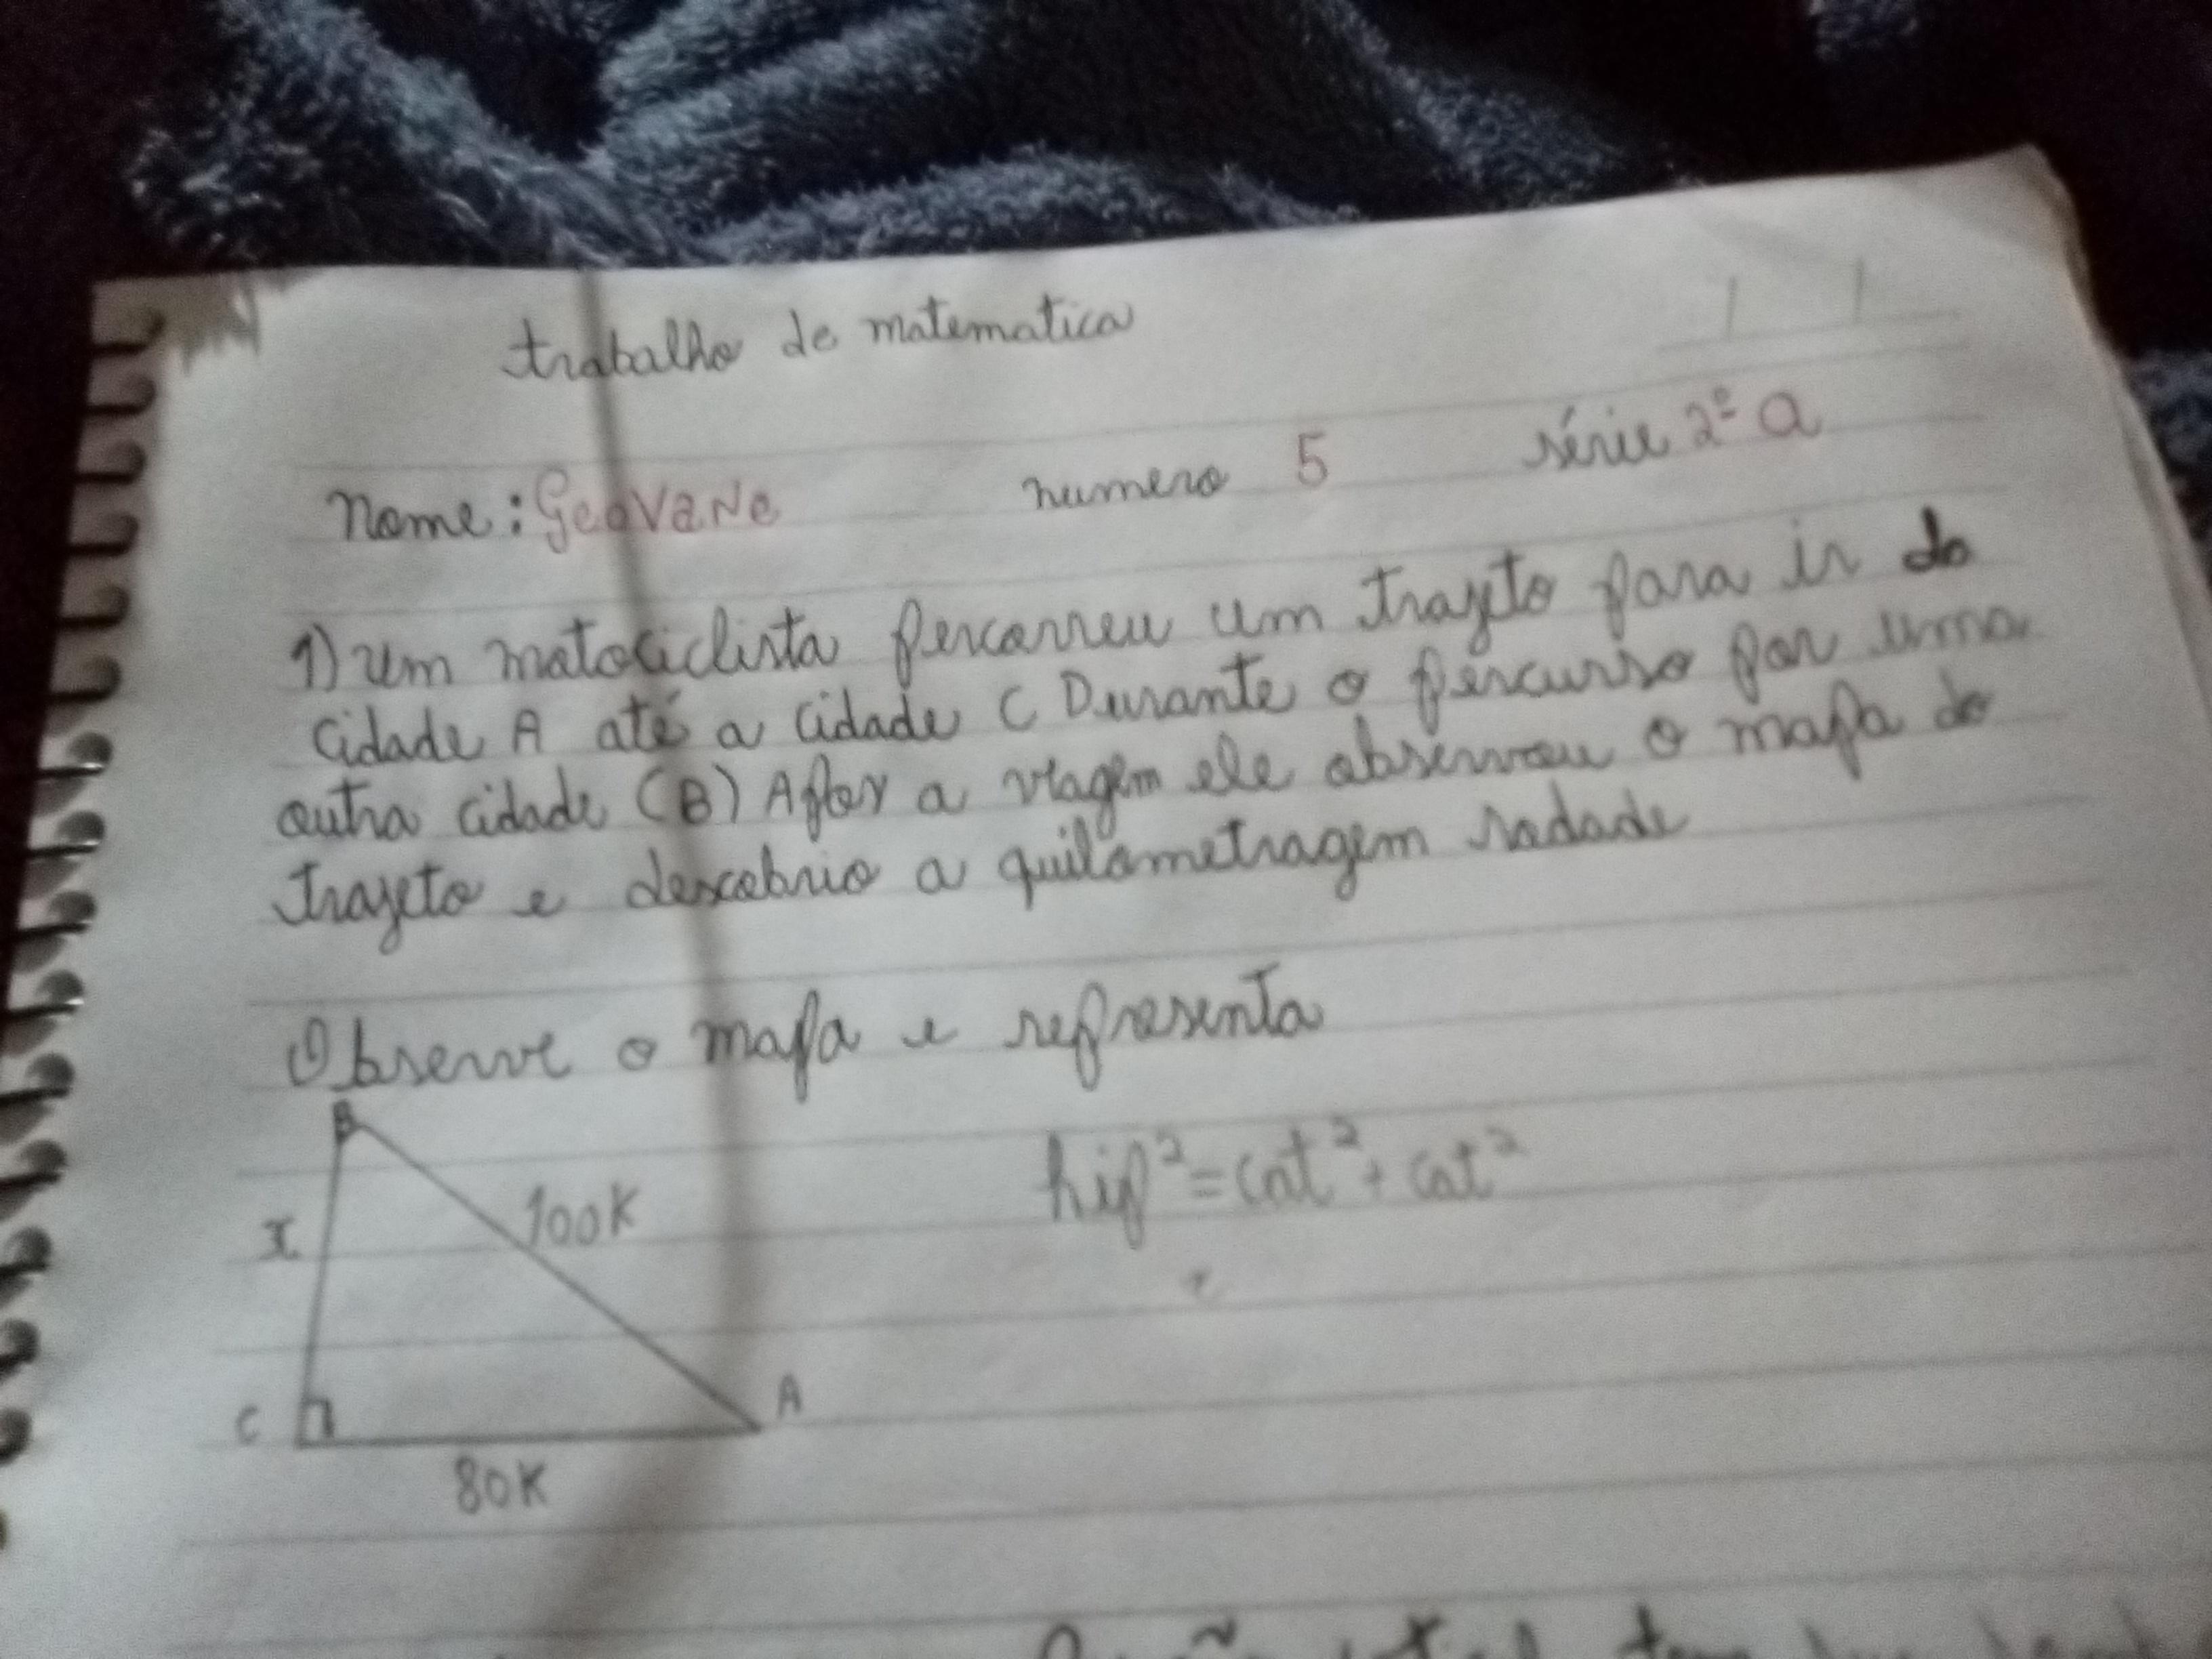 trabalho de matematica
/ /
Nome: Geovane numero 5 série 2º a
1) Um motociclista percorreu um trajeto para ir da
cidade A até a cidade C Durante o percurso por uma
outra cidade (B) Apos a viagem ele observou o mapa do
trajeto e descobrio a quilometragem rodade
Observe o mapa e representa
B
x
100K
hip² = cat² + cat²
C
A
80K